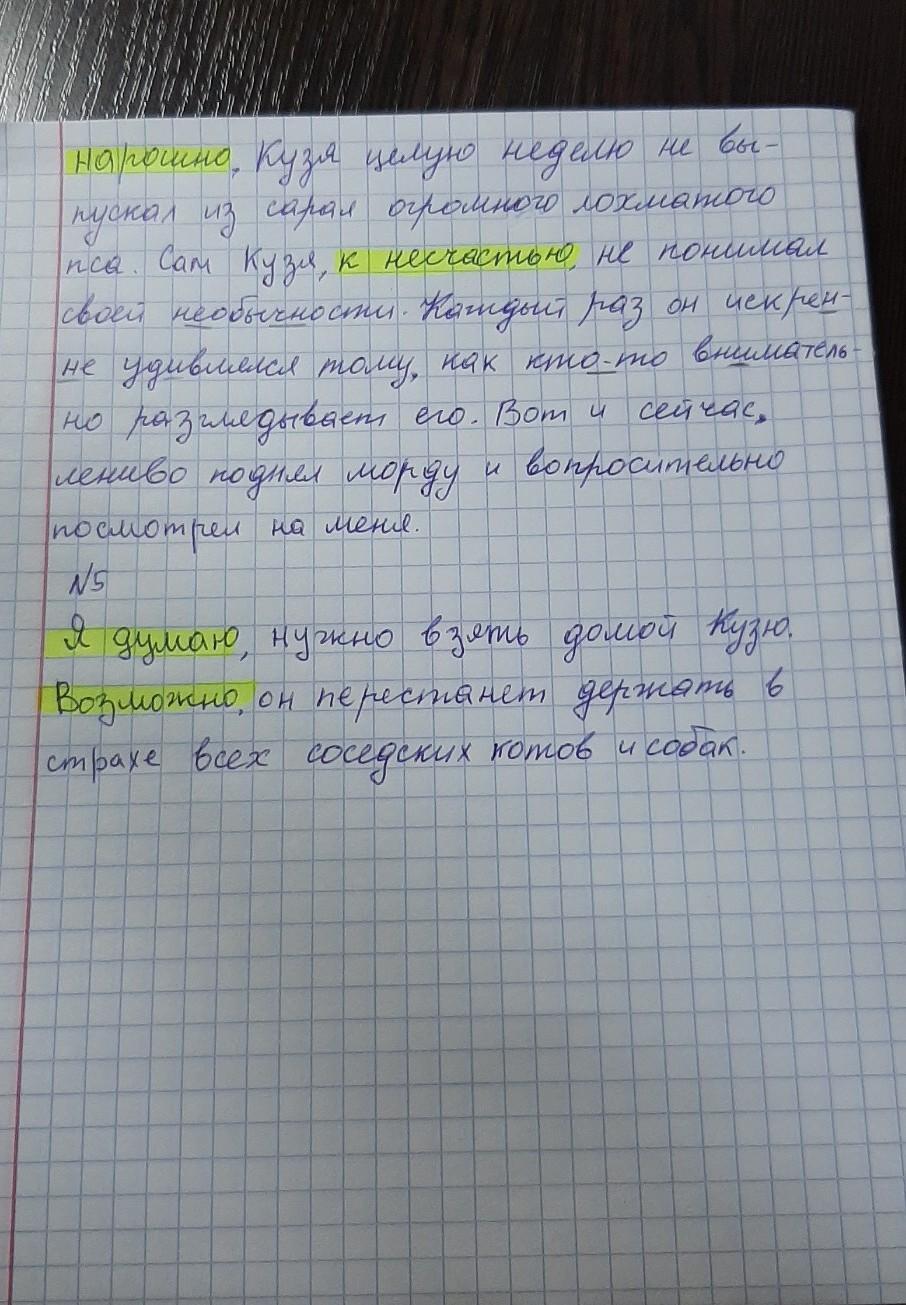 нарошно, Кузя целую неделю не вы-
пускал из сарая огромного лохматого
пса. Сам Кузя, к несчастью, не понимал
своей необычности. Каждый раз он искрен-
не удивлялся тому, как кто-то вниматель-
но разглядывает его. Вот и сейчас,
лениво поднял морду и вопросительно
посмотрел на меня.
№5
Я думаю, нужно взять домой Кузю.
Возможно, он перестанет держать в
страхе всех соседских котов и собак.